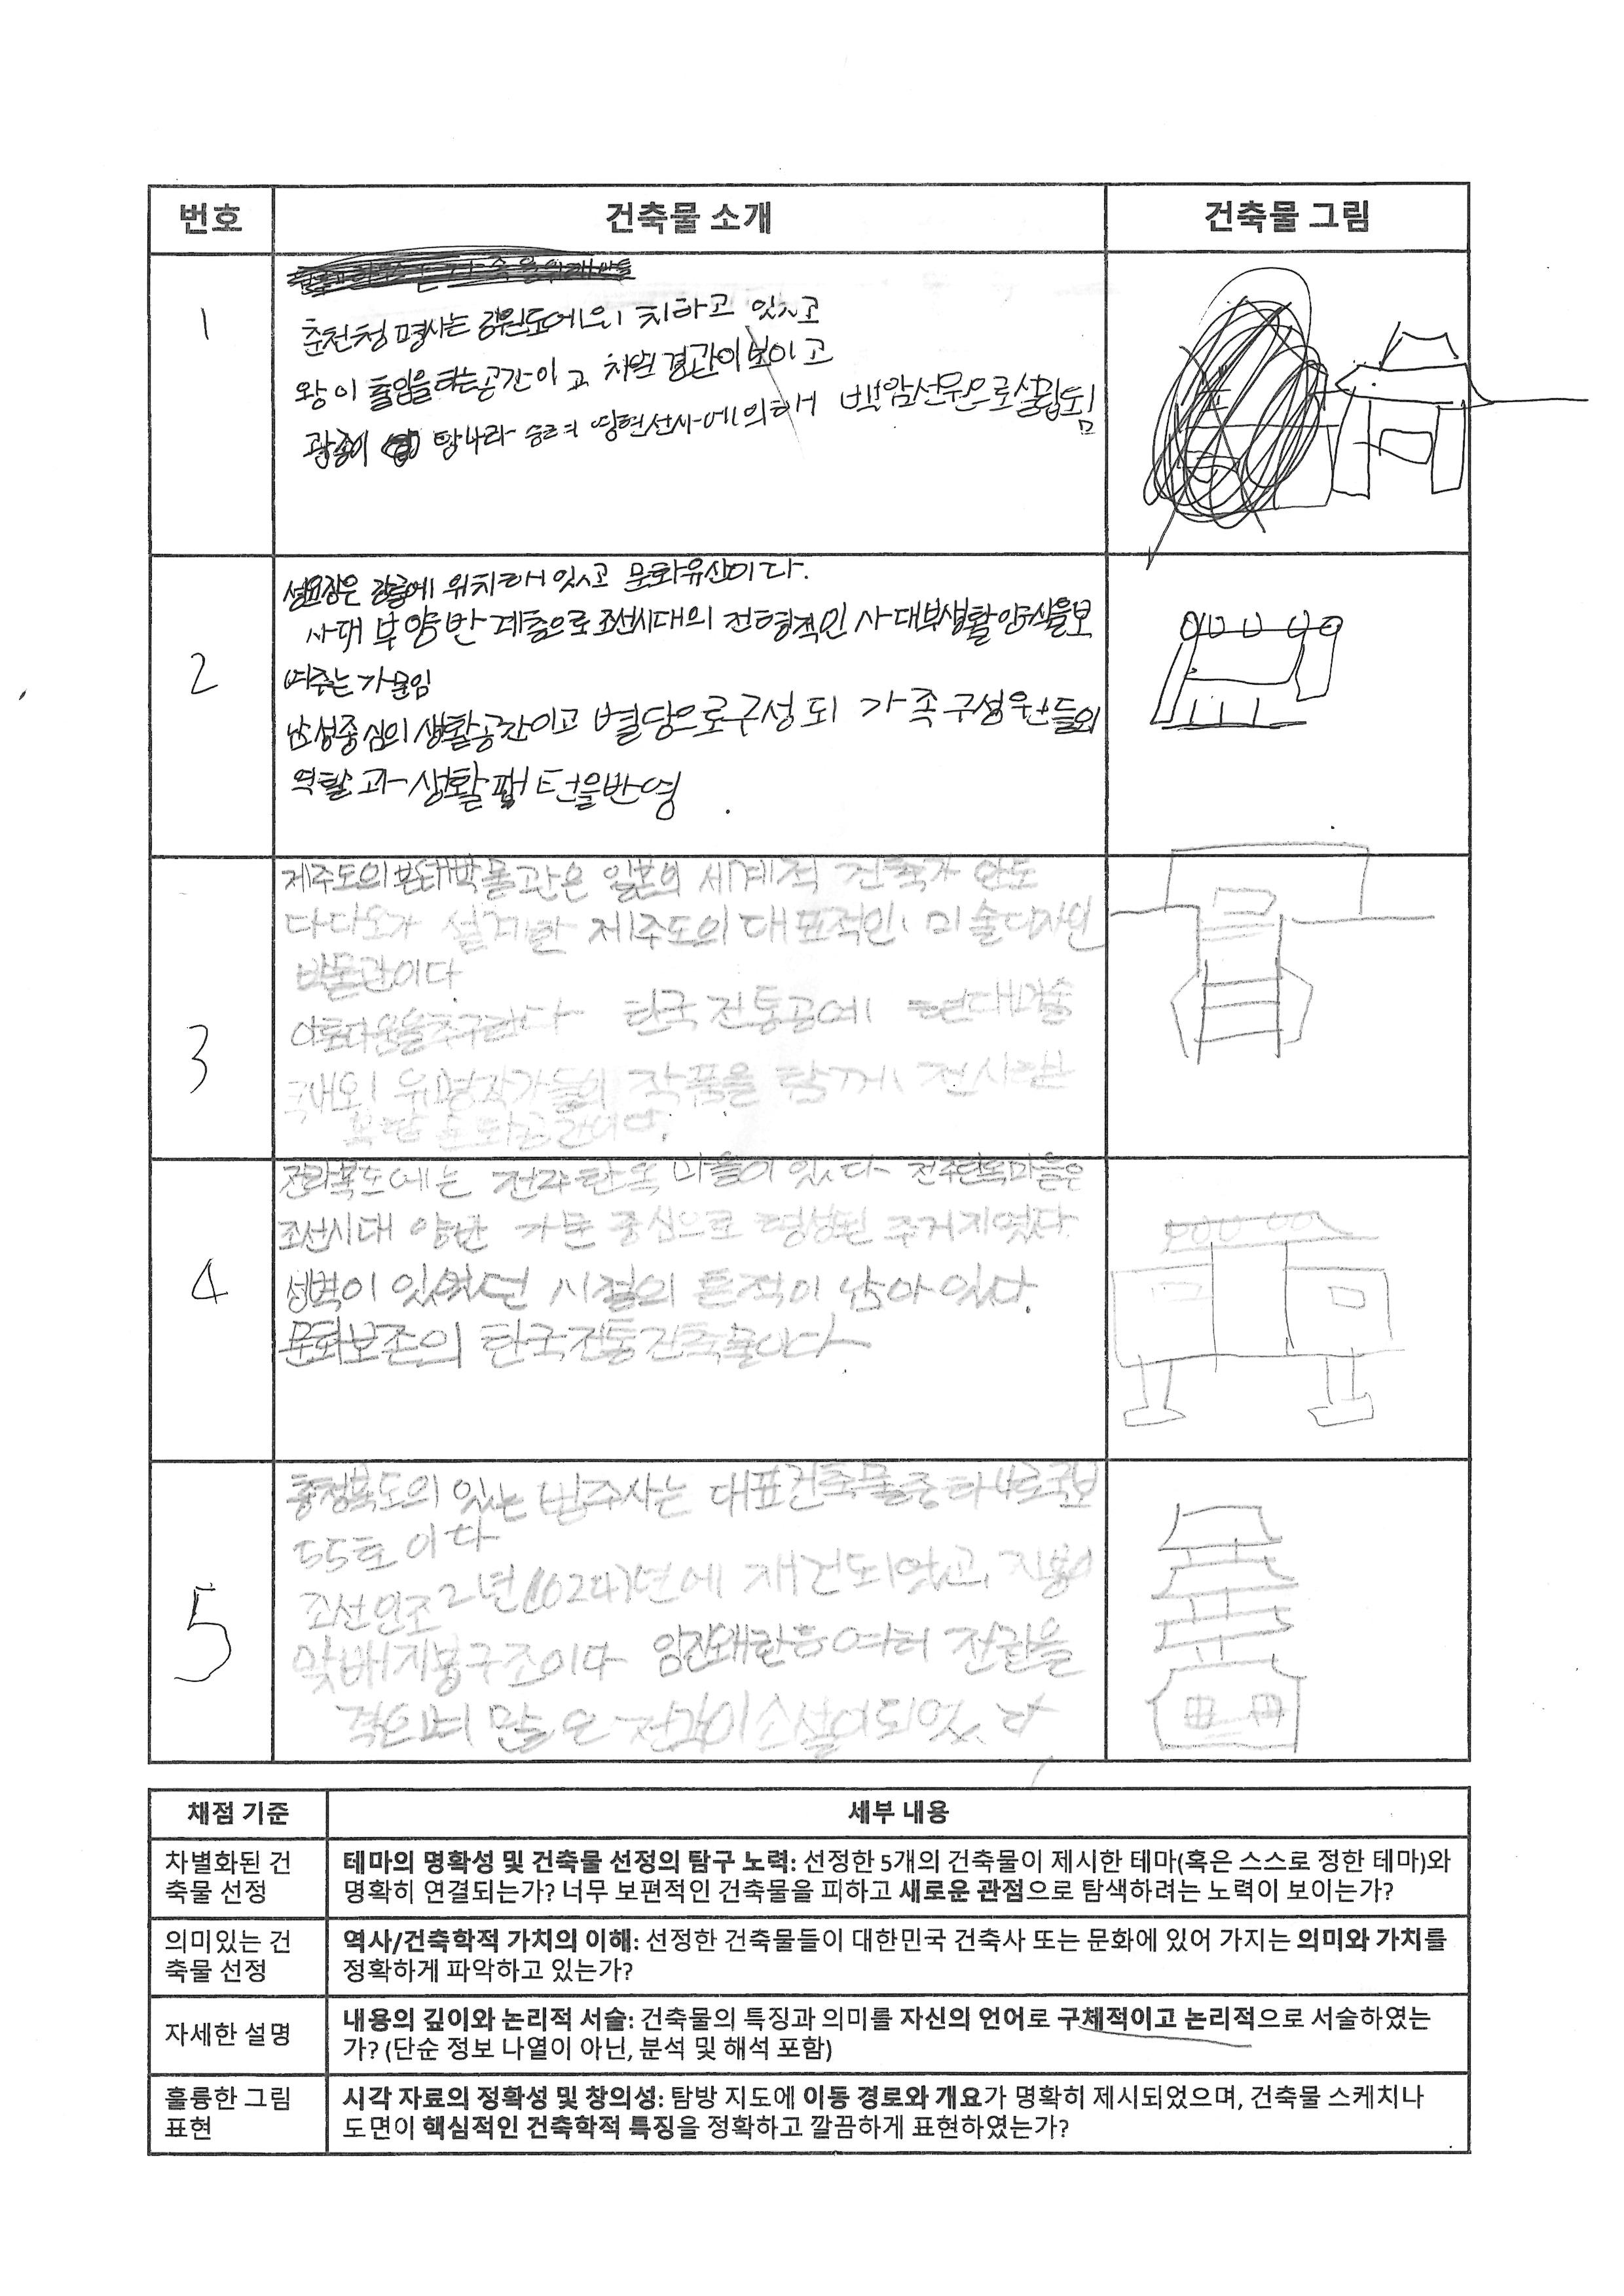 번호
건축물 소개
건축물 그림
1
춘천청명사는 강원도에 위치하고 있고
왕이 출입을 하는공간이고 차별 경관이 보이고
광종이 당나라 승려 영현선사에 의해서 백암선원으로설립됨
2
선교장은 강릉에 위치해 있고 문화유산이다.
사대부양반계층으로 조선시대의 전형적인 사대부생활양식을보
여주는가문임
남성중심의 생활공간이고 별당으로구성되 가족구성원들의
역할과 생활패턴을반영
3
제주도의 본태박물관은 일본의 세계적 건축가 안도
다다오가 설계한 제주도의 대표적인 미술디자인
박물관이다
한국 전통공예 현대미술
유명작가들의 작품을 함께 전시하는
복합 문화공간이다.
4
전라북도에는 전주한옥 마을이 있다 전주한옥마을은
조선시대 양반 가문 중심으로 형성된 주거지였다.
성벽이 있었던 시절의 흔적이 남아있다.
문화보존의 한국전통건축물이다
5
충청북도의 있는 법주사는 대표건축물중하나로국보
55호 이다
조선인조2년(1624)년에 재건되었고, 지붕이
맞배지붕구조이다 임진왜란등 여러 전란을
겪으며 많은 전각이소실이되었다
채점 기준
세부 내용
차별화된 건
축물 선정
테마의 명확성 및 건축물 선정의 탐구 노력: 선정한 5개의 건축물이 제시한 테마(혹은 스스로 정한 테마)와
명확히 연결되는가? 너무 보편적인 건축물을 피하고 새로운 관점으로 탐색하려는 노력이 보이는가?
의미있는 건
축물 선정
역사/건축학적 가치의 이해: 선정한 건축물들이 대한민국 건축사 또는 문화에 있어 가지는 의미와 가치를
정확하게 파악하고 있는가?
자세한 설명
내용의 깊이와 논리적 서술: 건축물의 특징과 의미를 자신의 언어로 구체적이고 논리적으로 서술하였는
가? (단순 정보 나열이 아닌, 분석 및 해석 포함)
훌륭한 그림
표현
시각 자료의 정확성 및 창의성: 탐방 지도에 이동 경로와 개요가 명확히 제시되었으며, 건축물 스케치나
도면이 핵심적인 건축학적 특징을 정확하고 깔끔하게 표현하였는가?